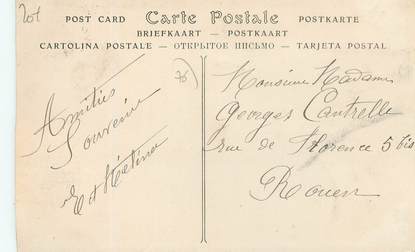 201
POST CARD Carte Postale POSTKARTE
BRIEFKAART — POSTKAART
CARTOLINA POSTALE — ОТКРЫТОЕ ПИСЬМО — TARJETA POSTAL
76
Amitiés
Souvenir
Monsieur Madame
Georges Cantrelle
rue de Florence 5 bis
Rouen